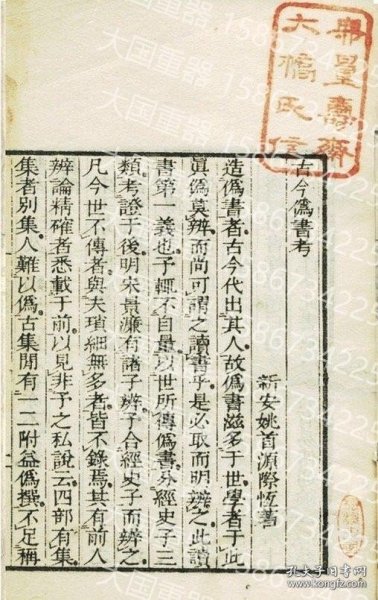 無量壽齋
古今僞書考
新安姚首源際恆著
造僞書者古今代出其人故僞書滋多于世學者于此
眞僞莫辨而尚可謂之讀書乎是必取而明辨之此讀
書第一義也予輒不自量以世所傳僞書分經史子三
類考證于後明宋景濂有諸子辨予合經史子而辨之
凡今世不傳者與夫瑣細無多者皆不錄焉其有前人
辨論精確者悉載于前以見非予之私說云四部有集
集者別集人難以僞古集閒有一二附益僞撰不足稱
大国重器
孔夫子旧书网